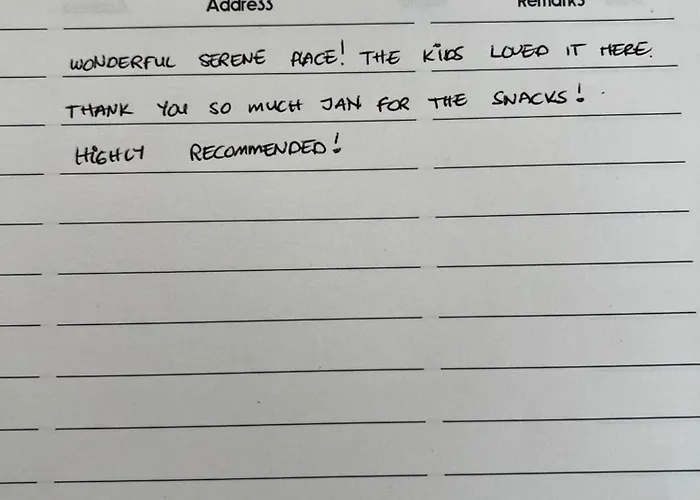 Address Remarks
WONDERFUL SERENE PLACE! THE KiDS LOVED IT HERE.
THANK YOU SO MUCH JAN FOR THE SNACKS!
HiGHLY RECOMMENDED!